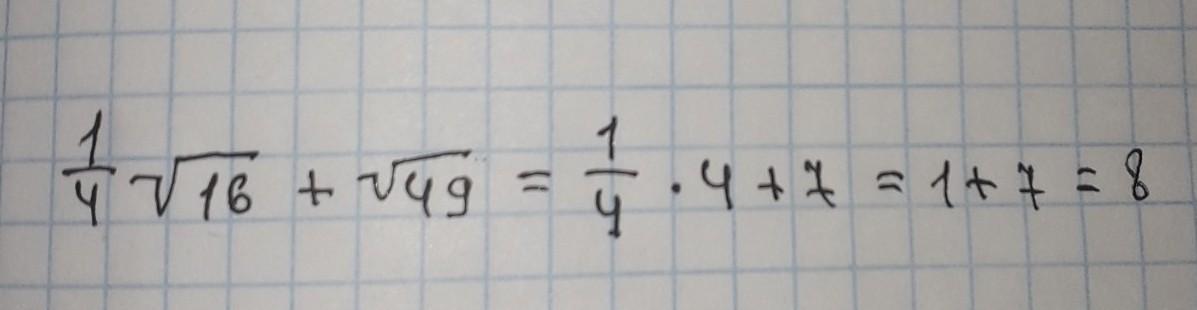 1/4 √16 + √49 = 1/4 · 4 + 7 = 1 + 7 = 8